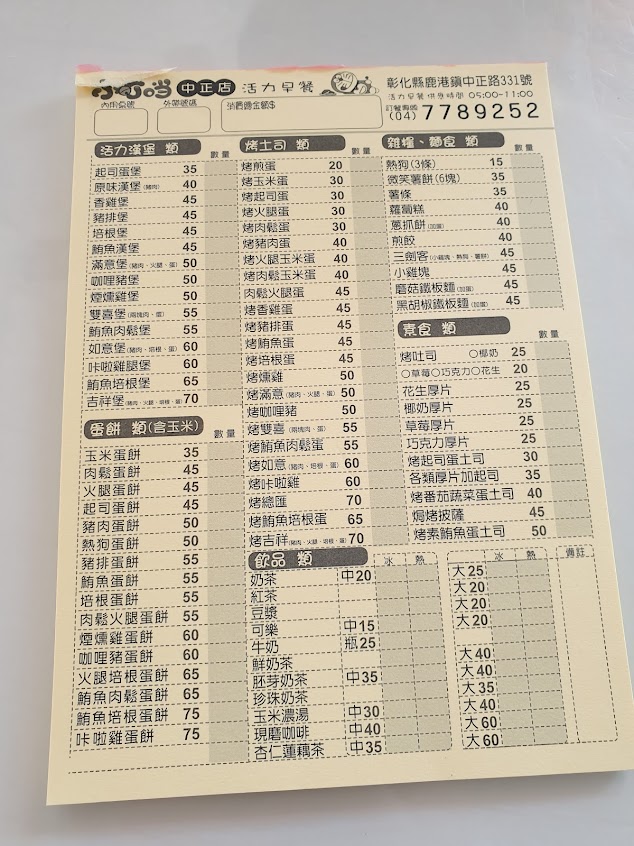 小叮噹 中正店 活力早餐
彰化縣鹿港鎮中正路331號
活力早餐供應時間 05:00-11:00
訂餐專線
(04) 7789252
內用桌號 外帶號碼 消費總金額$
活力漢堡 類 數量
起司蛋堡 35
原味漢堡(豬肉) 40
香雞堡 45
豬排堡 45
培根堡 45
鮪魚漢堡 45
滿意堡(豬肉、火腿、蛋) 50
咖哩豬堡 50
煙燻雞堡 50
雙喜堡(兩塊肉、蛋) 55
鮪魚肉鬆堡 55
如意堡(豬肉、培根、蛋) 60
咔啦雞腿堡 60
鮪魚培根堡 65
吉祥堡(豬肉、火腿、培根、蛋) 70
蛋餅 類(含玉米) 數量
玉米蛋餅 35
肉鬆蛋餅 45
火腿蛋餅 45
起司蛋餅 45
豬肉蛋餅 50
熱狗蛋餅 50
豬排蛋餅 55
鮪魚蛋餅 55
培根蛋餅 55
肉鬆火腿蛋餅 55
煙燻雞蛋餅 60
咖哩豬蛋餅 60
火腿培根蛋餅 65
鮪魚肉鬆蛋餅 65
鮪魚培根蛋餅 75
咔啦雞蛋餅 75
烤土司 類 數量
烤煎蛋 20
烤玉米蛋 30
烤起司蛋 30
烤火腿蛋 30
烤肉鬆蛋 30
烤豬肉蛋 40
烤火腿玉米蛋 40
烤肉鬆玉米蛋 40
肉鬆火腿蛋 45
烤香雞蛋 45
烤豬排蛋 45
烤鮪魚蛋 45
烤培根蛋 45
烤燻雞 50
烤滿意(豬肉、火腿、蛋) 50
烤咖哩豬 50
烤雙喜(兩塊肉、蛋) 55
烤鮪魚肉鬆蛋 55
烤如意(豬肉、培根、蛋) 60
烤咔啦雞 60
烤總匯 70
烤鮪魚培根蛋 65
烤吉祥(豬肉、火腿、培根、蛋) 70
雜糧、麵食 類 數量
熱狗(3條) 15
微笑薯餅(6塊) 35
薯條 35
蘿蔔糕 40
蔥抓餅(加蛋) 40
煎餃 40
三劍客(小雞塊、熱狗、薯餅) 45
小雞塊 45
磨菇鐵板麵(加蛋) 45
黑胡椒鐵板麵(加蛋) 45
素食 類 數量
烤吐司 ○椰奶 25
○草莓○巧克力○花生 20
花生厚片 25
椰奶厚片 25
草莓厚片 25
巧克力厚片 25
烤起司蛋土司 30
各類厚片加起司 35
烤番茄蔬菜蛋土司 40
焗烤披薩 45
烤素鮪魚蛋土司 50
飲品 類 冰 熱 冰 熱 備註
奶茶 中20 大25
紅茶 大20
豆漿 大20
可樂 中15 大20
牛奶 瓶25
鮮奶茶 大40
胚芽奶茶 中35 大40
珍珠奶茶 大35
玉米濃湯 中30 大40
現磨咖啡 中40 大60
杏仁蓮藕茶 中35 大60